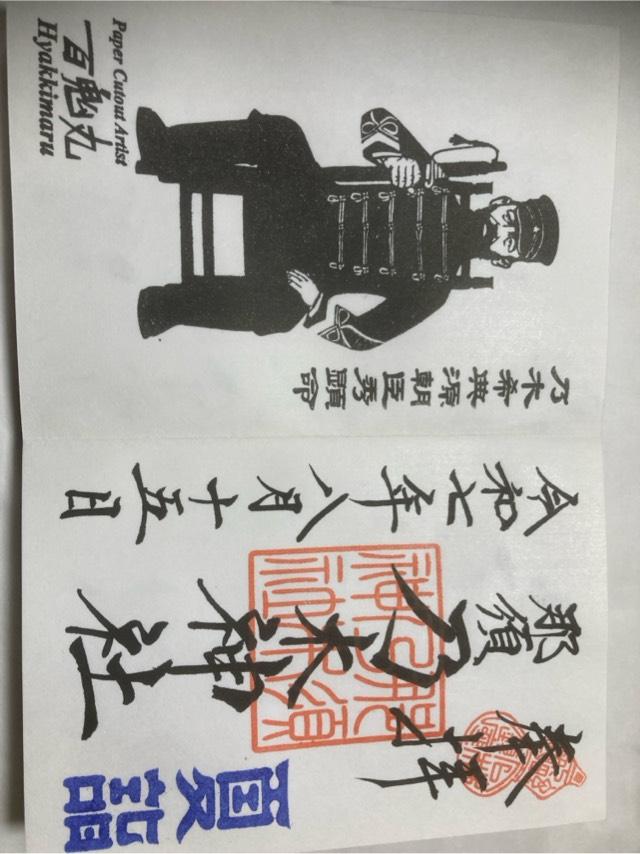 夏詣
奉拝
那須乃木神社
令和七年八月十五日
乃木希典源朝臣秀顕命
Paper Cutout Artist
百鬼丸
Hyakkimaru